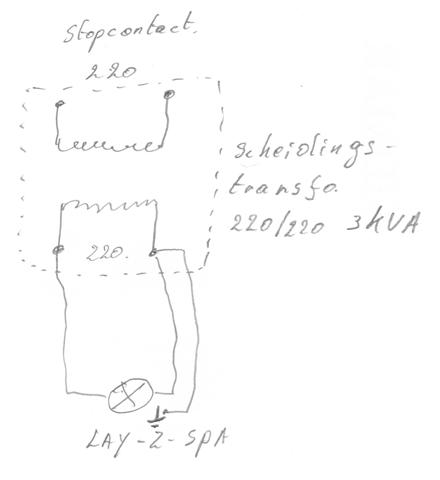 stopcontact.
220
scheidings-
transfo.
220/220 3kVA
220.
LAY-Z-SPA